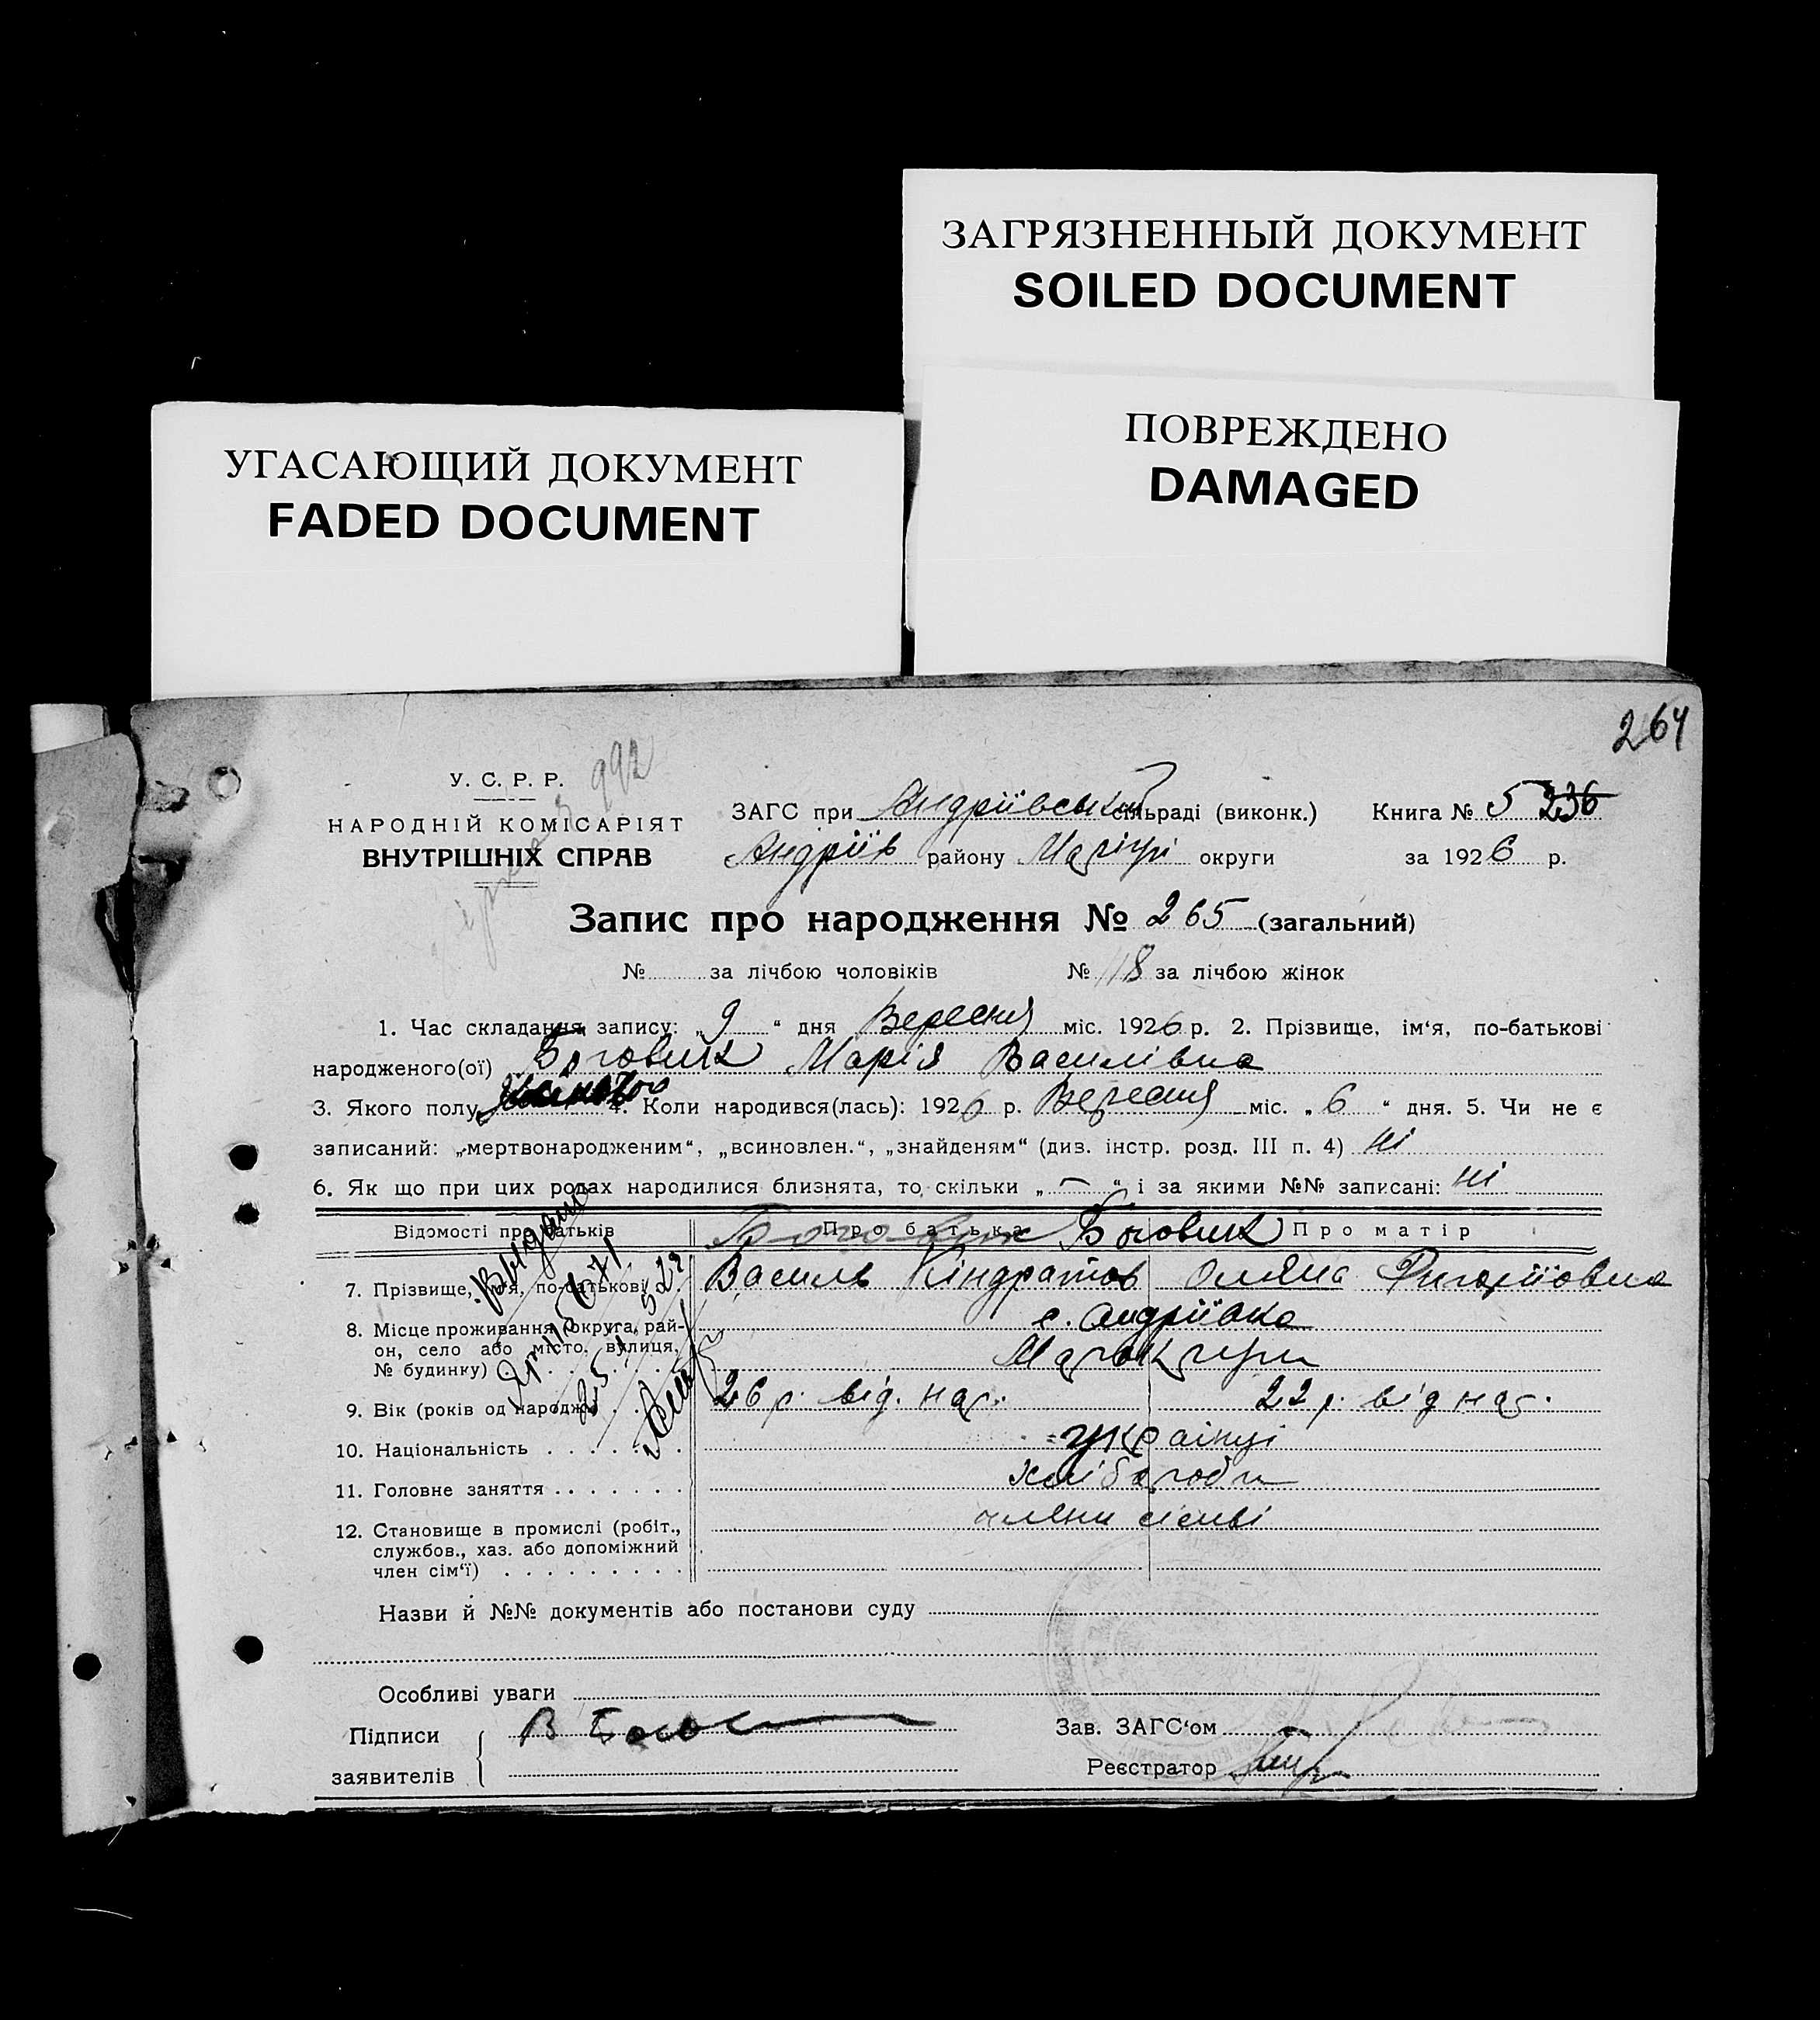 ЗАГРЯЗНЕННЫЙ ДОКУМЕНТ
SOILED DOCUMENT
ПОВРЕЖДЕНО
DAMAGED
УГАСАЮЩИЙ ДОКУМЕНТ
FADED DOCUMENT
264
992
У. С. Р. Р.
НАРОДНІЙ КОМІСАРІЯТ
ВНУТРІШНІХ СПРАВ
ЗАГС при Андріївській сільраді (виконк.) Книга № 5 236
Андріїв району округи за 1926 р.
Запис про народження № 265 (загальний)
№ за лічбою чоловіків № 118 за лічбою жінок
1. Час складання запису: „9“ дня Вересня міс. 1926 р. 2. Прізвище, ім‘я, по-батькові
народженого(ої) Боговик Марія Василівна
3. Якого полу 4. Коли народився(лась): 1926 р. Вересня міс. „6“ дня. 5. Чи не є
записаний: „мертвонародженим“, „всиновлен.“, „знайденям“ (див. інстр. розд. III п. 4) ні
6. Як що при цих родах народилися близнята, то скільки „—“ і за якими №№ записані: ні
Відомості про батьків Про батька Боговик Про матір
7. Прізвище, ім‘я, по-батькові Василь Кіндратов Оляна
8. Місце проживання (округа, рай-
он, село або місто, вулиця,
№ будинку) с. Андріївка
9. Вік (років од народж.) 26 р. від. нар. 22 р. від нар.
10. Національність українці
11. Головне заняття хлібороби
12. Становище в промислі (робіт.,
службов., хаз. або допоміжний
член сім‘ї) члени сімві
Видано
Назви й №№ документів або постанови суду
Особливі уваги
Підписи
заявителів В
Зав. ЗАГС‘ом
Реєстратор